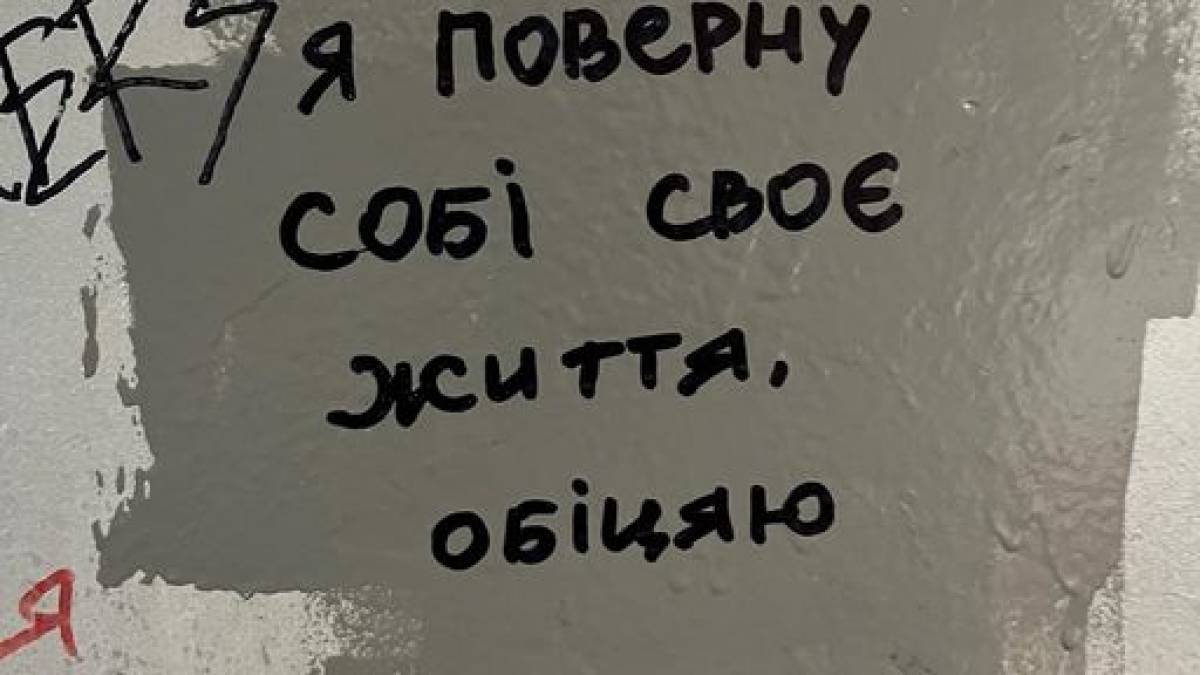 Я ПОВЕРНУ
СОБІ СВОЄ
ЖИТТЯ,
ОБІЦЯЮ
Я